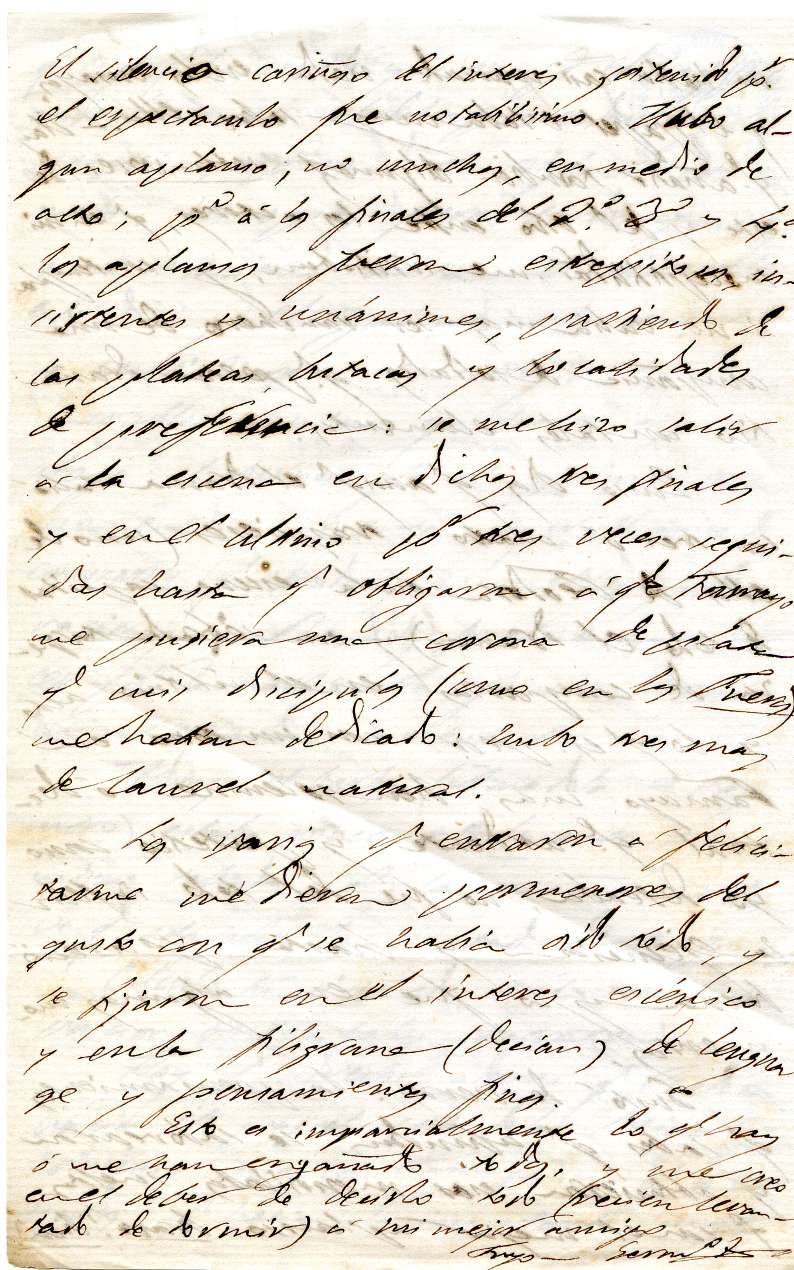 El silencio cariñoso del interes sostenido pr.
el espectaculo fue notabilisimo. Hubo al-
gun aplauso, no muchos, en medio de
acto; po á los finales del 2º. 3º y 4º.
los aplausos fueron estrepitosos, in-
sistentes y unánimes, partiendo de
las plateas, butacas y localidades
de preferencia: se me hizo salir
á la escena en dichos tres finales
y en el ultimo pr tres veces segui-
das hasta q. obligaron á q. Tamayo
me pusiera una corona de plata
q. mis discipulos (como en los Fueros)
me habian dedicado: hubo tres mas
de laurel natural.
Los varios q. entraron á felici-
tarme me dieron pormenores del
gusto con q. se habia oido todo, y
se fijaron en el interes escénico
y en la filigrana (decian) de lengua
ge y pensamientos finos.
Esto es imparcialmente lo q. hay
ó me han engañado todos, y me creo
en el deber de decirlo todo (recien levan-
tado de dormir) á mi mejor amigo
Suyo